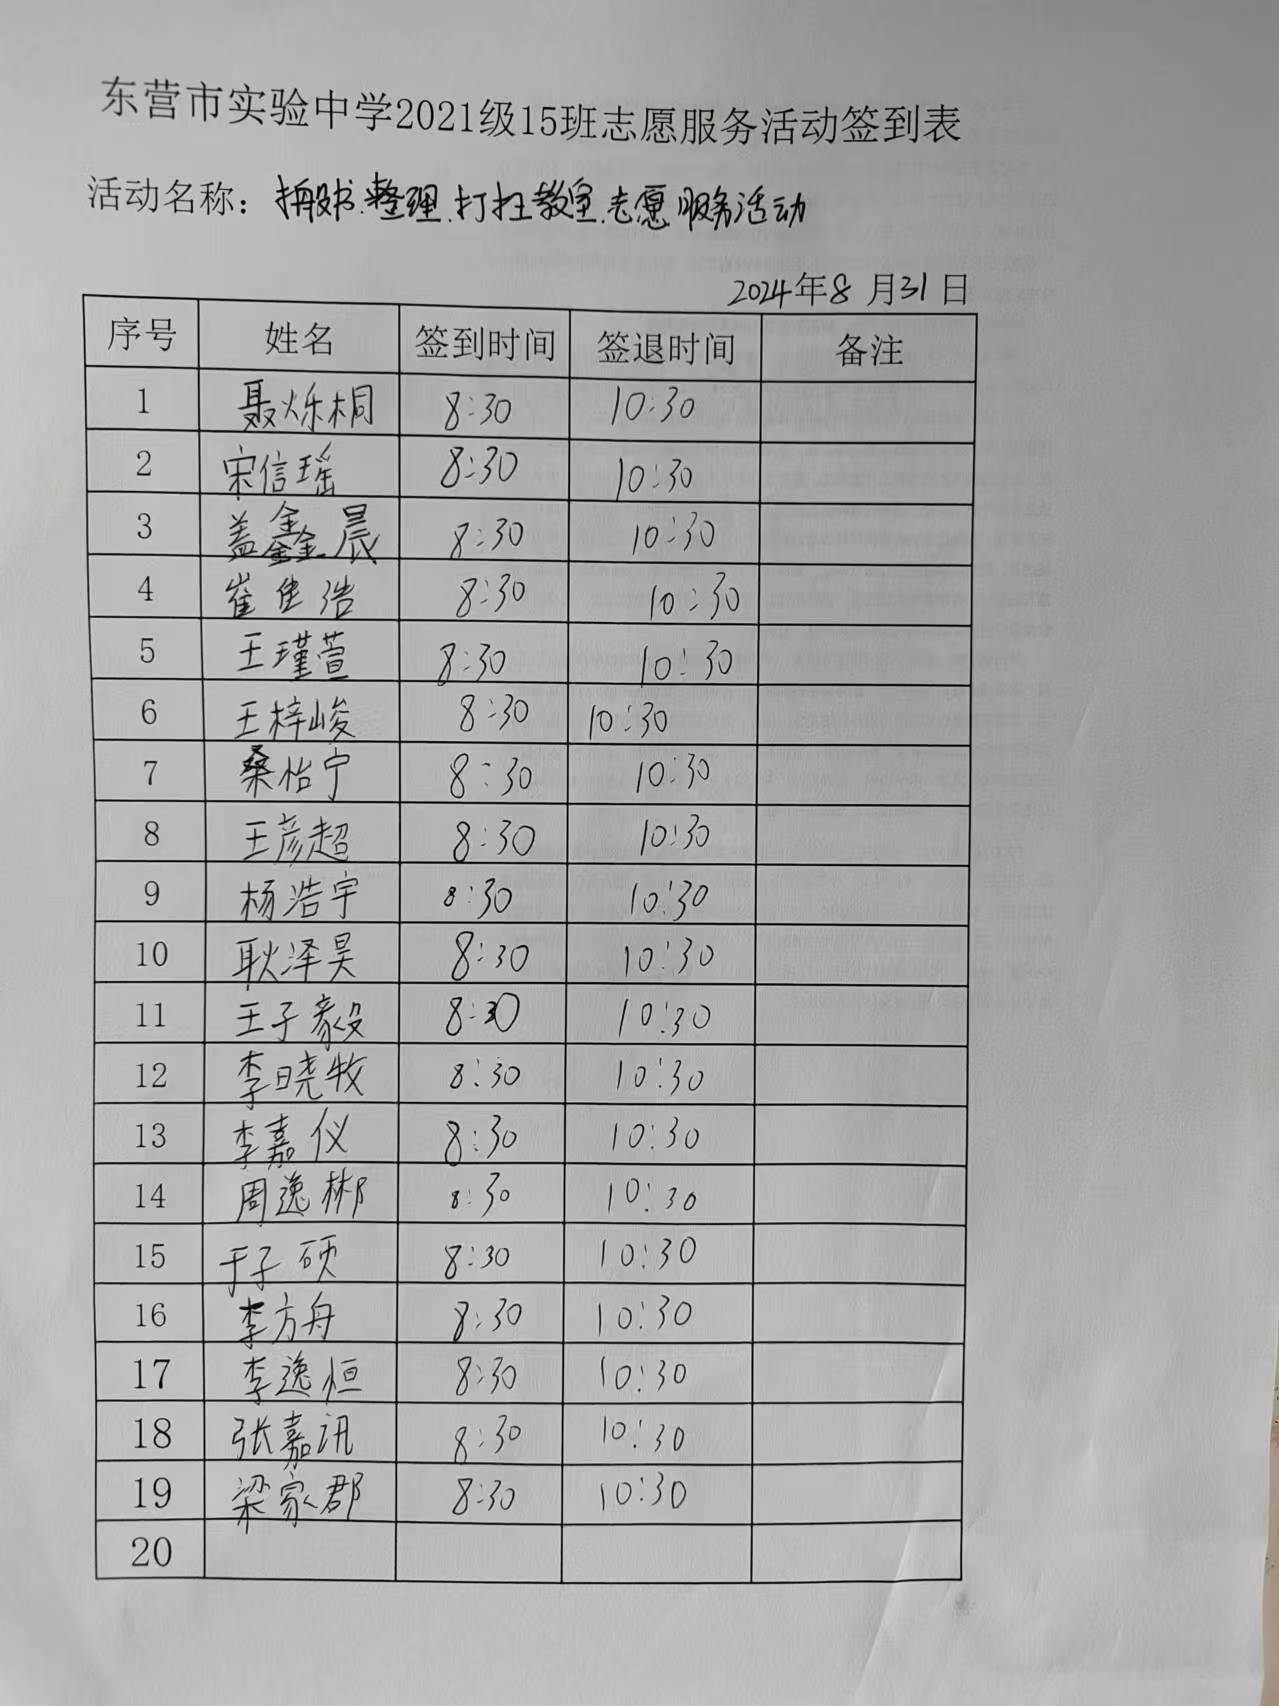 东营市实验中学2021级15班志愿服务活动签到表
活动名称：搬书.整理.打扫教室.志愿服务活动
2024年8月31日
序号 姓名 签到时间 签退时间 备注
1 聂烁桐 8:30 10:30
2 宋信瑶 8:30 10:30
3 盖鑫晨 8:30 10:30
4 崔隽浩 8:30 10:30
5 王瑾萱 8:30 10:30
6 王梓峻 8:30 10:30
7 桑怡宁 8:30 10:30
8 王彦超 8:30 10:30
9 杨浩宇 8:30 10:30
10 耿泽昊 8:30 10:30
11 王子毅 8:30 10:30
12 李晓牧 8:30 10:30
13 李嘉仪 8:30 10:30
14 周逸彬 8:30 10:30
15 于子硕 8:30 10:30
16 李方舟 8:30 10:30
17 李逸恒 8:30 10:30
18 张嘉讯 8:30 10:30
19 梁家郡 8:30 10:30
20